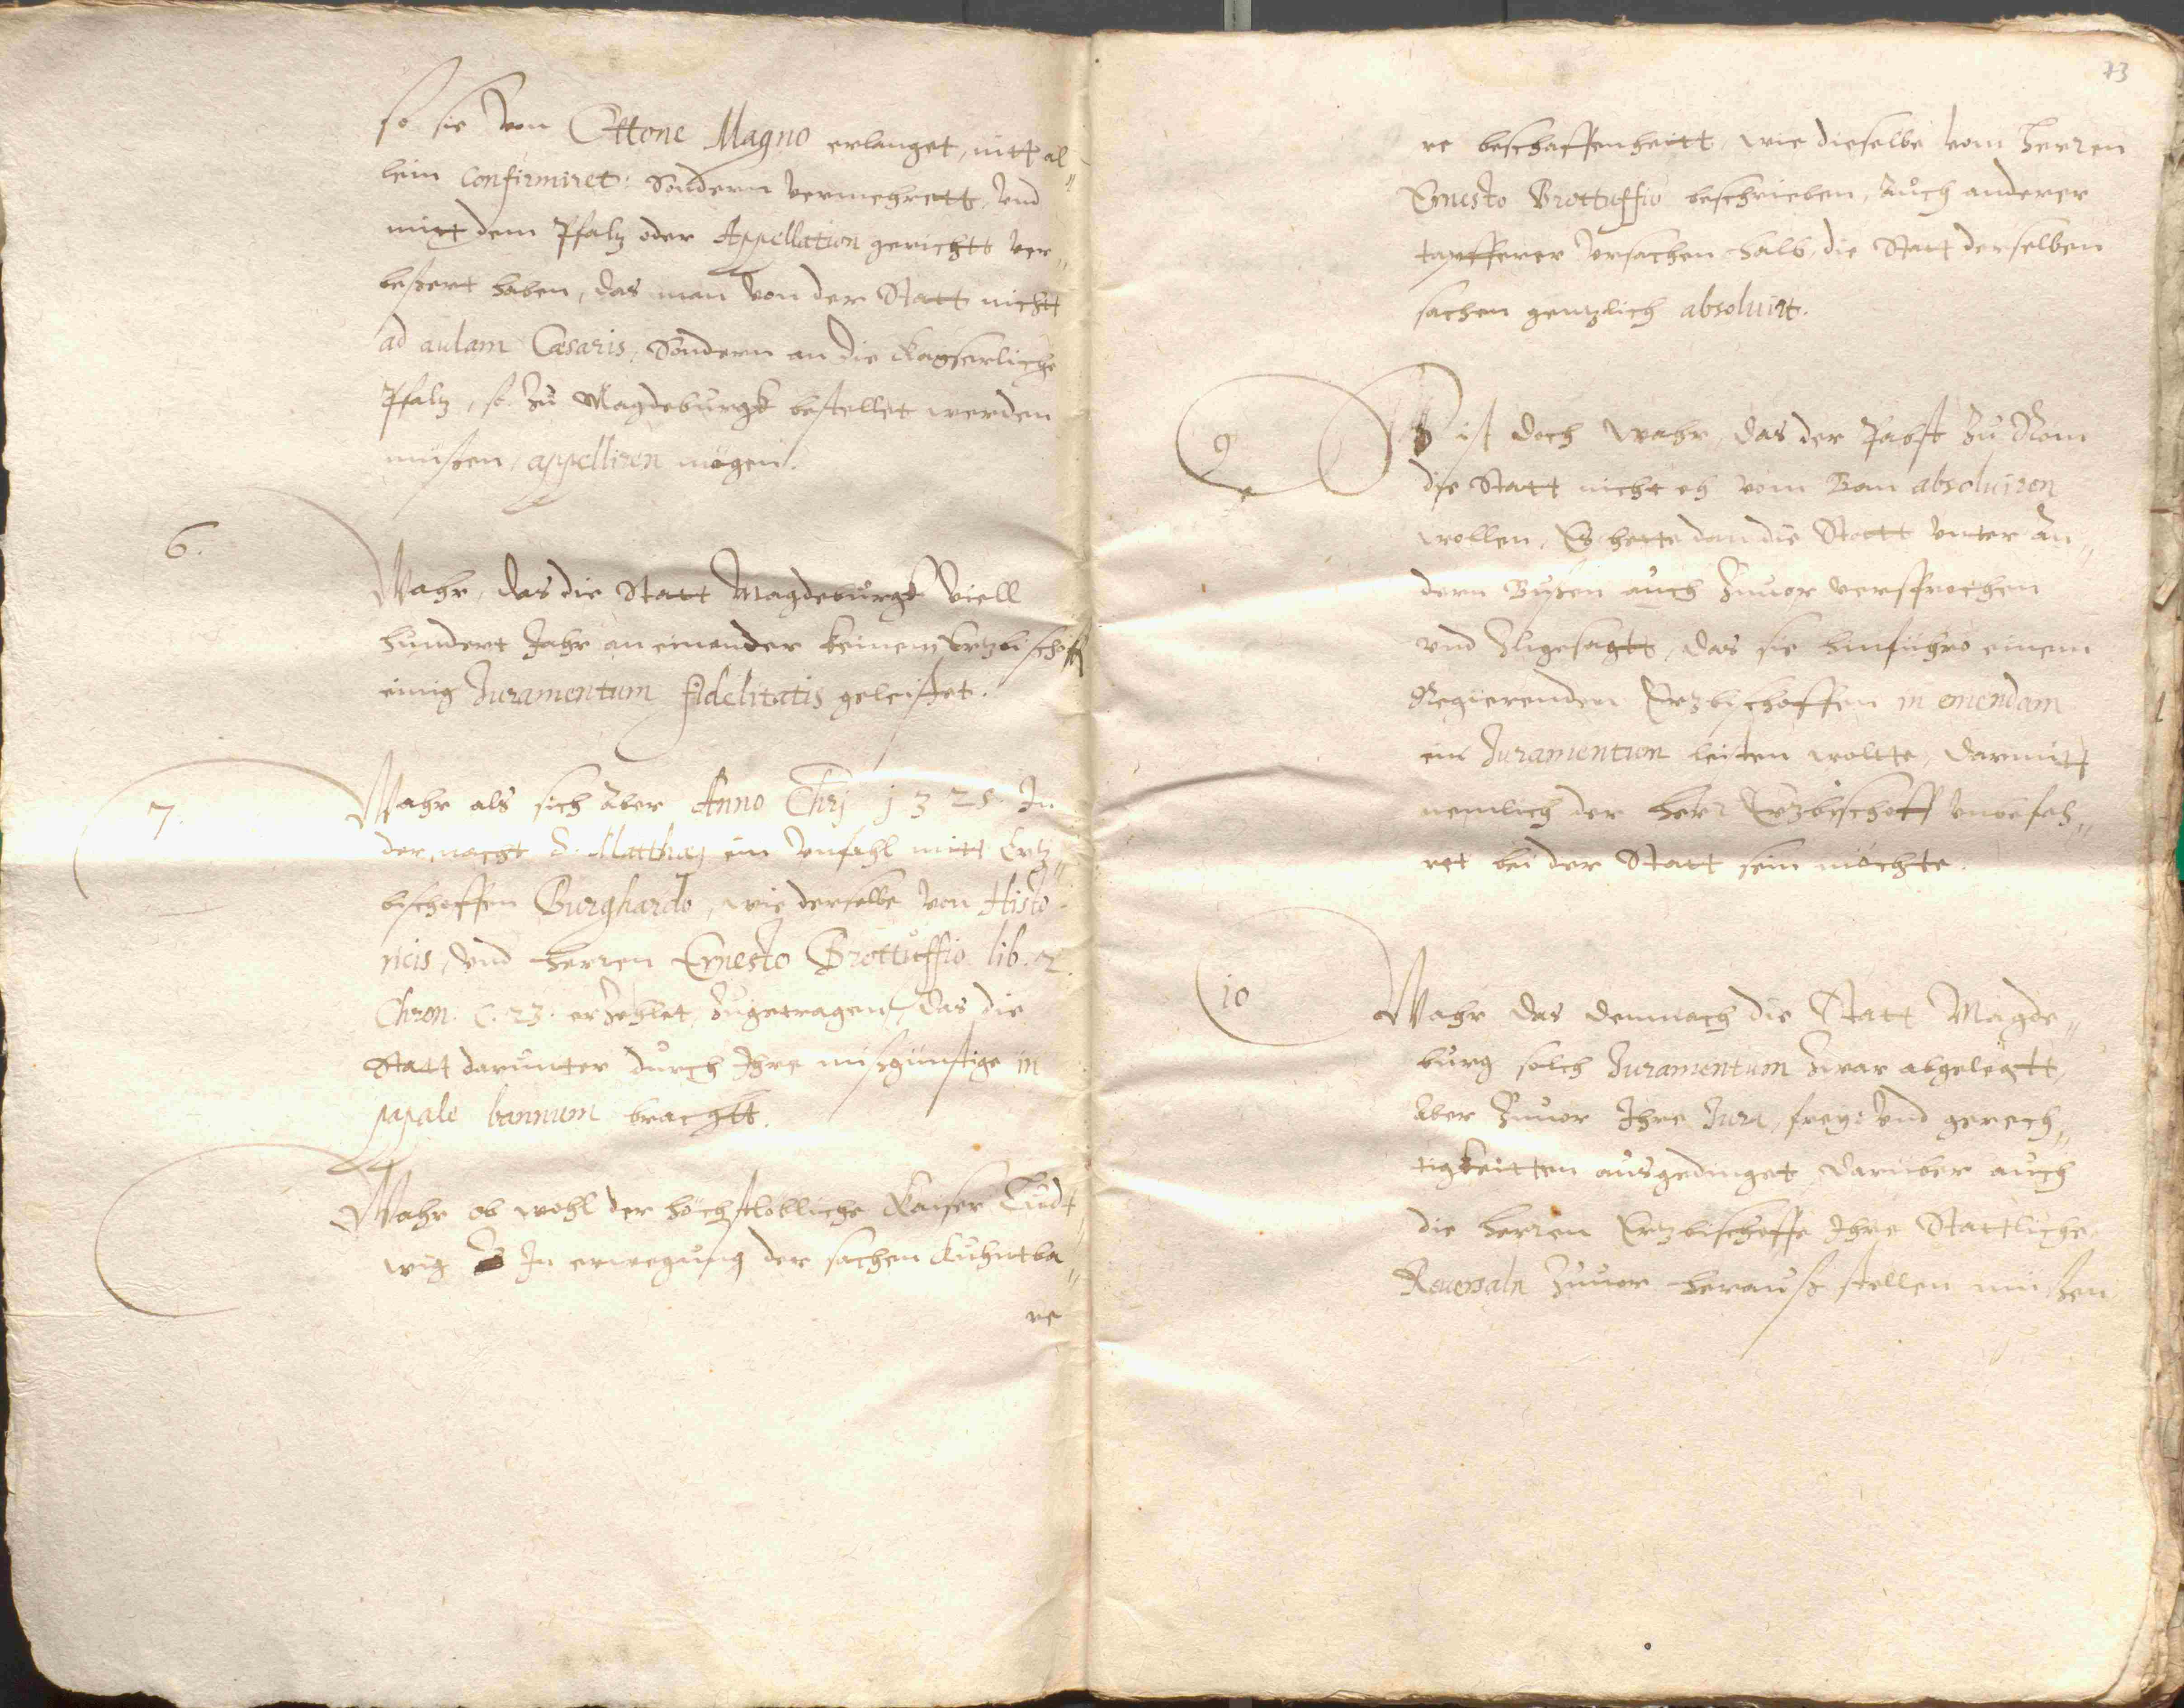 so sie von Ottone Magno erlanget, nitt al„
lein Confirmiret: Sondern vermehrett, vnd
mitt dem Pfaltz oder Appellation gerichtt ver„
beßert haben, das man von der Statt nichtt
ad aulam Cæsaris, Sondern an die Kayserliche
Pfaltz, so zu Magdeburgk bestellet werden
mußen, appelliren mögen.
6.
Wahr, das die Statt Magdeburgk viell
hundert Jahr an einander keinem Ertzbischoff
einig Juramentum fidelitatis geleistet.
7.
Wahr als sich aber Anno Chrj 1325. In
der nacht S. Matthæj ein vnfahl mitt Ertz„
bischoffen Burghardo, wie derselbe von Histo
ricis, vnd Herren Ernesto Brottuffio lib. 2.
Chron. C. 23. erzehlet, zugetragen, das die
Statt darunter durch Ihre mißgünstige in
papale bannum brachtt.
Wahr ob wohl der höchstlöbliche Kaiser Lud„
wig In erwegung der sachen kuhntba„
re
73
re beschaffenheitt, wie dieselbe vom Herren
Ernesto Brottuffio beschrieben, auch anderer
tapfferer vrsachen halb, die Statt derselben
sachen gentzlich absoluirt.
9
So ist doch wahr, das der Pabst zu Rom
die Statt nicht eh vom Ban absoluiren
wollen, Es hette dan die Statt vnter an„
dern Bußen auch zuuor versprochen
vnd zugesagtt, das sie hinfuhro einem
Regierenden Ertzbischoffen in emendam
ein Juramentum leisten woltte, darmitt
nemlich der Herr Ertzbischoff vnbefah„
ret bei der Statt sein möchte.
10
Wahr das demnach die Statt Magde„
burg solch Juramentum zwar abgelegtt,
aber zuuor Ihre Jura, freye vnd gerech„
tigkeitten ausgedinget, daruber auch
die Herren Ertzbischoffe Ihre Stattliche
Reuersaln zuuor herauß stellen mußen